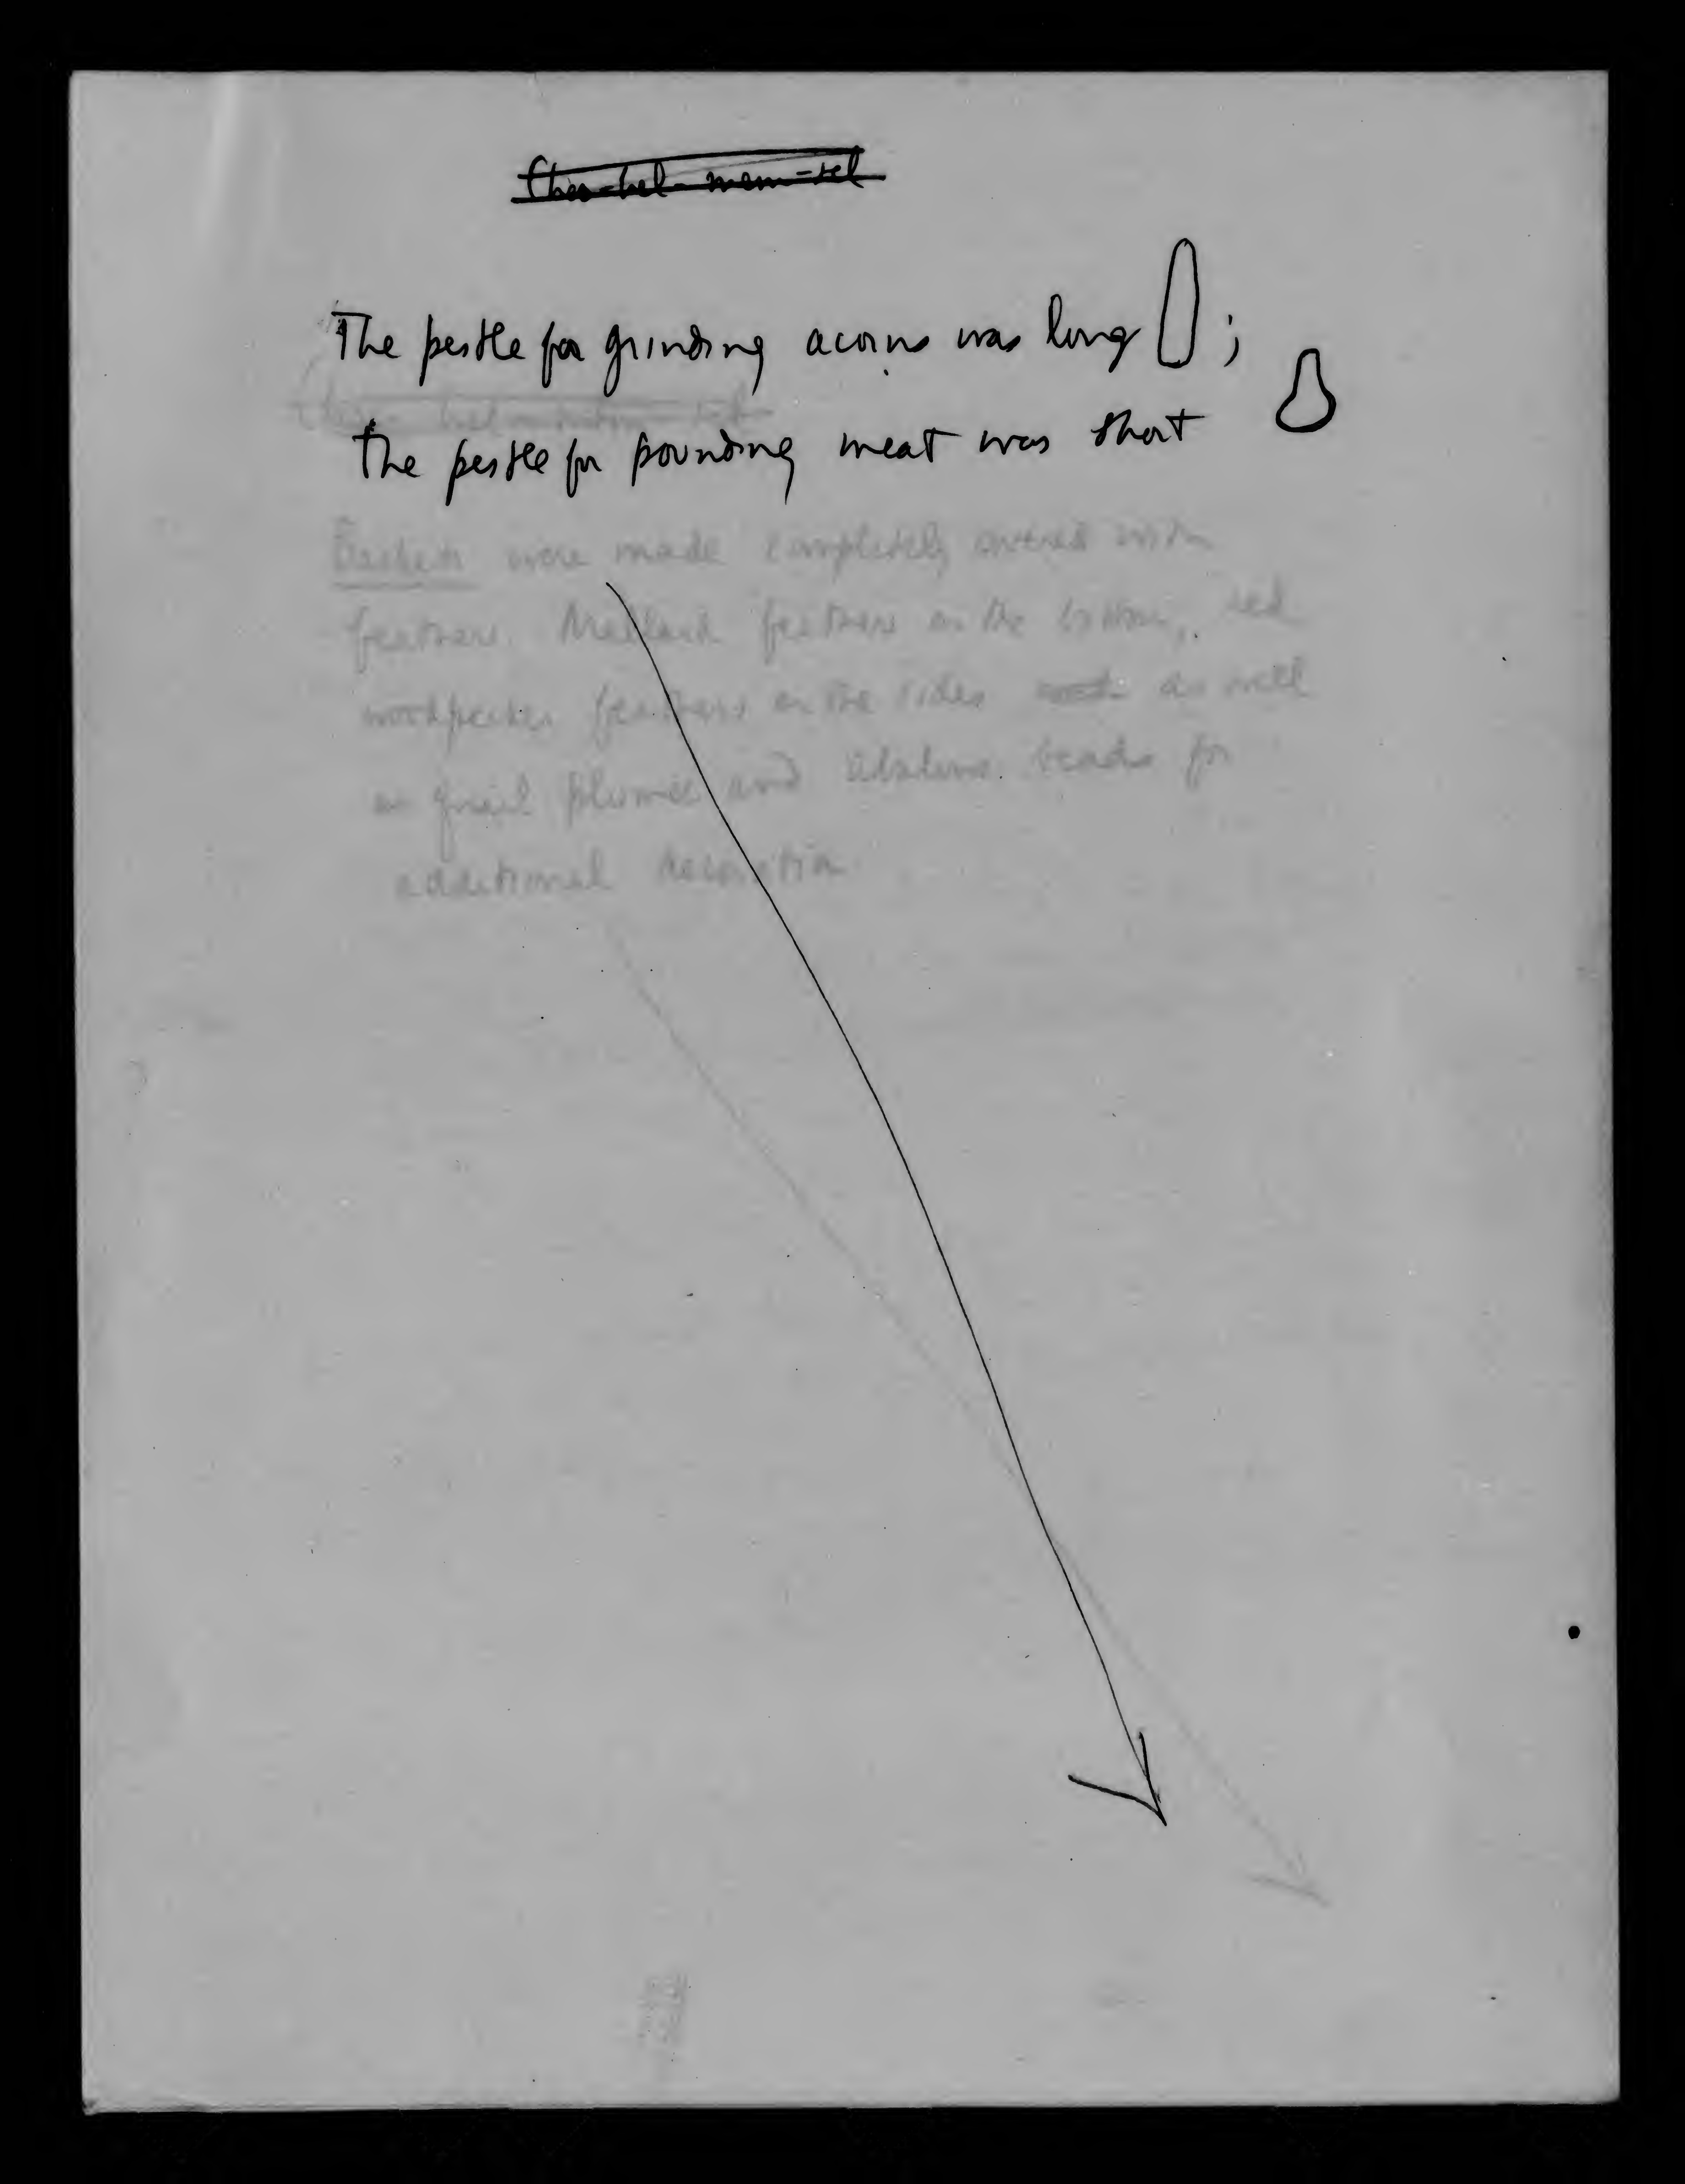 The pestle for grinding acorns was long ;
the pestle for pounding meat was short
Baskets were made completely covered with
feathers. Mallard feathers on the bottom, red
woodpecker feathers on the sides as well
as quail plumes and abalone beads for
additional decoration